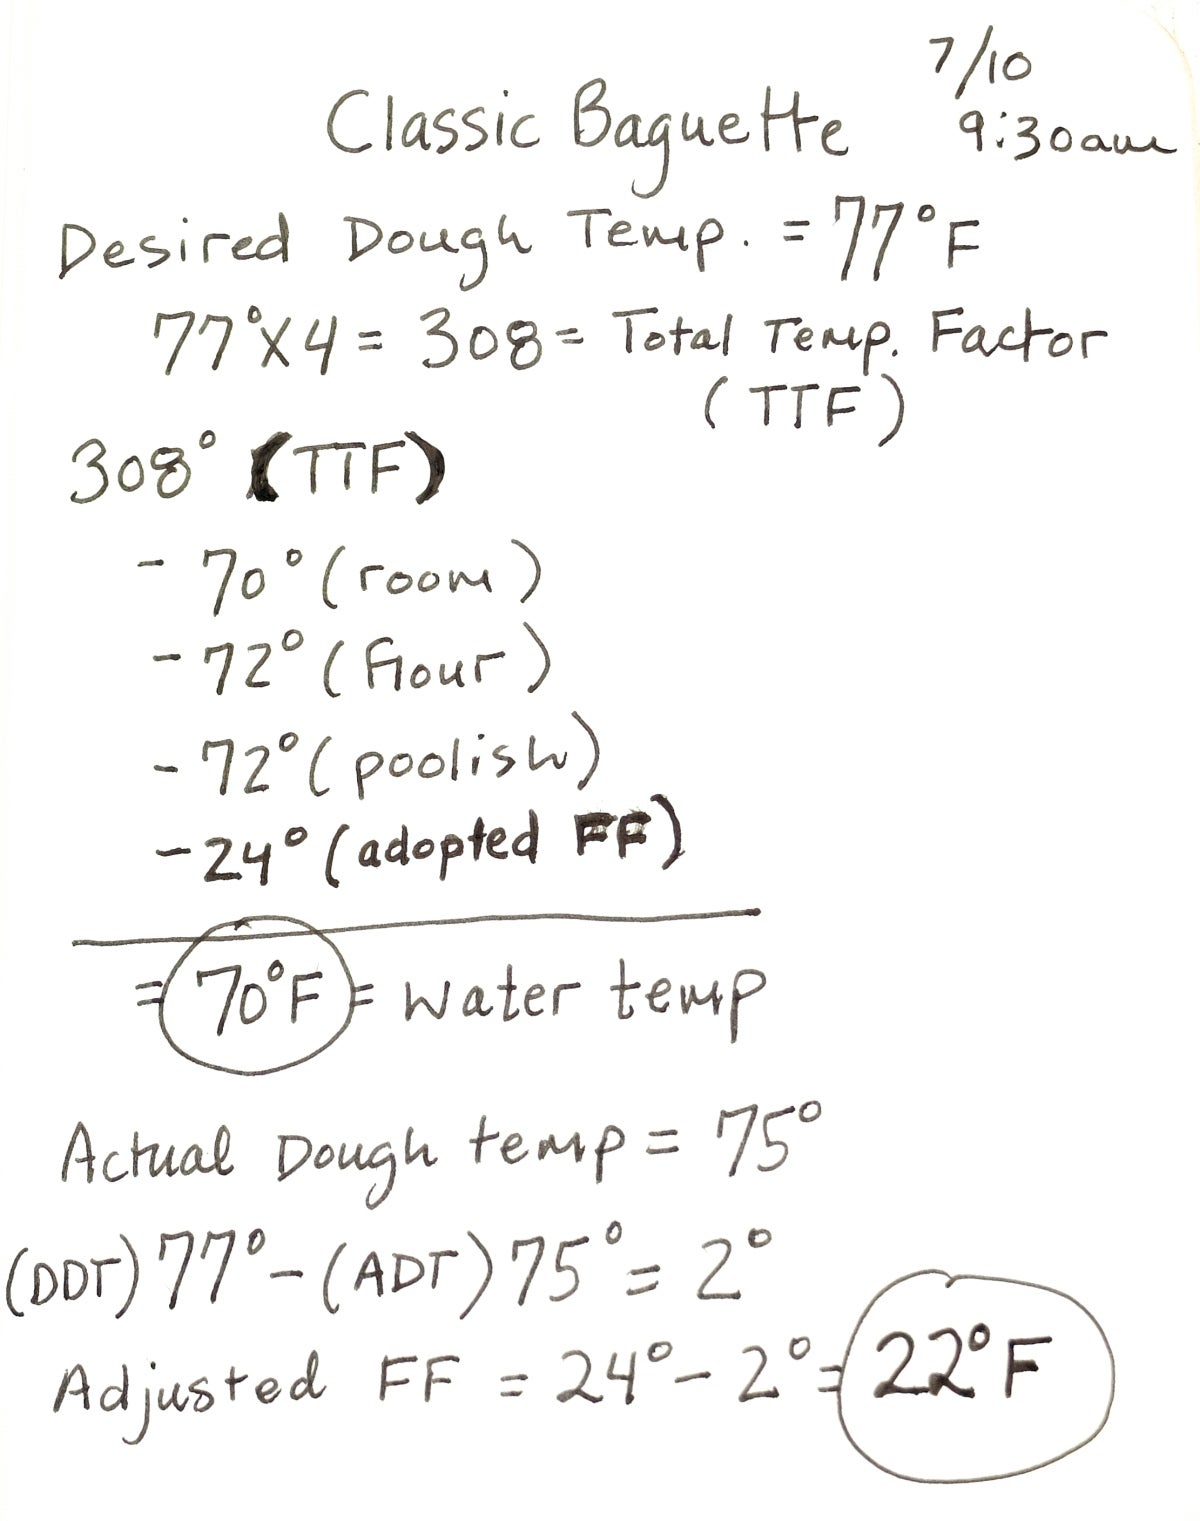 7/10
Classic Baguette 9:30am
Desired Dough Temp. = 77°F
77°x4 = 308 = Total Temp. Factor
(TTF)
308° (TTF)
- 70° (room)
- 72° (flour)
- 72° (poolish)
- 24° (adopted FF)
= 70°F = water temp
Actual Dough temp = 75°
(DDT) 77° - (ADT) 75° = 2°
Adjusted FF = 24° - 2° = 22°F